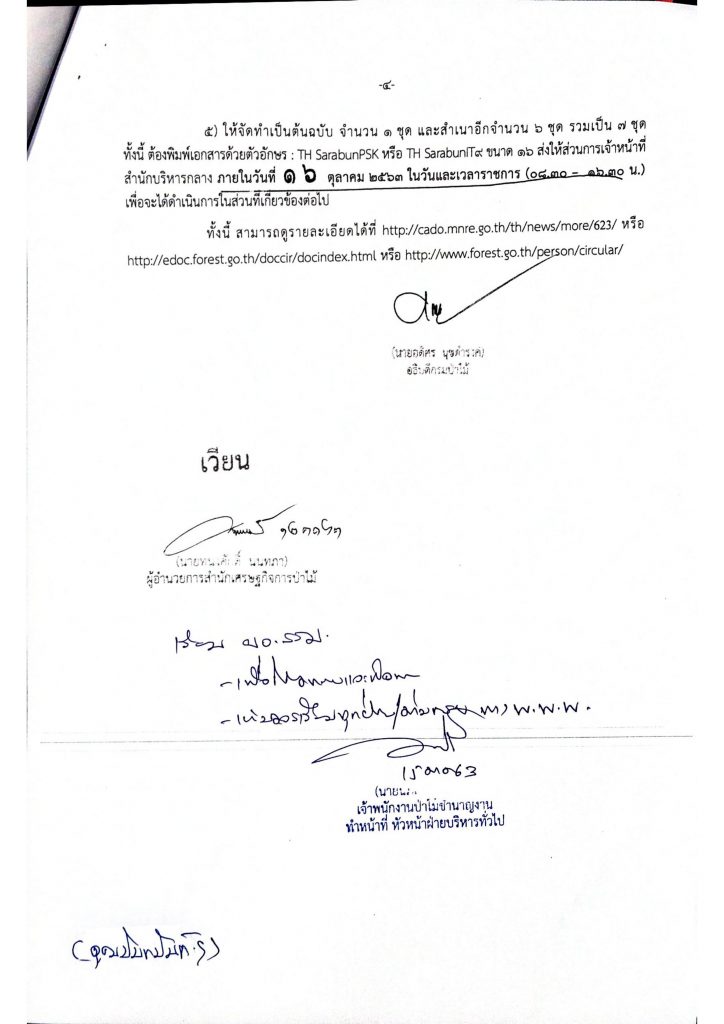 -๔-
๕) ให้จัดทำเป็นต้นฉบับ จำนวน ๑ ชุด และสำเนาอีกจำนวน ๖ ชุด รวมเป็น ๗ ชุด
ทั้งนี้ ต้องพิมพ์เอกสารด้วยตัวอักษร : TH SarabunPSK หรือ TH SarabunIT๙ ขนาด ๑๖ ส่งให้ส่วนการเจ้าหน้าที่
สำนักบริหารกลาง ภายในวันที่ ๑๖ ตุลาคม ๒๕๖๓ ในวันและเวลาราชการ (๐๘.๓๐ – ๑๖.๓๐ น.)
เพื่อจะได้ดำเนินการในส่วนที่เกี่ยวข้องต่อไป
ทั้งนี้ สามารถดูรายละเอียดได้ที่ http://cado.mnre.go.th/th/news/more/623/ หรือ
http://edoc.forest.go.th/doccir/docindex.html หรือ http://www.forest.go.th/person/circular/
(นายอดิศร นุชดำรงค์)
อธิบดีกรมป่าไม้
เวียน
นันทภา)
ผู้อำนวยการสำนักเศรษฐกิจการป่าไม้
เรียน
- เพื่อโปรดทราบและพิจารณา
(นาย
เจ้าพนักงานป่าไม้ชำนาญงาน
ทำหน้าที่ หัวหน้าฝ่ายบริหารทั่วไป